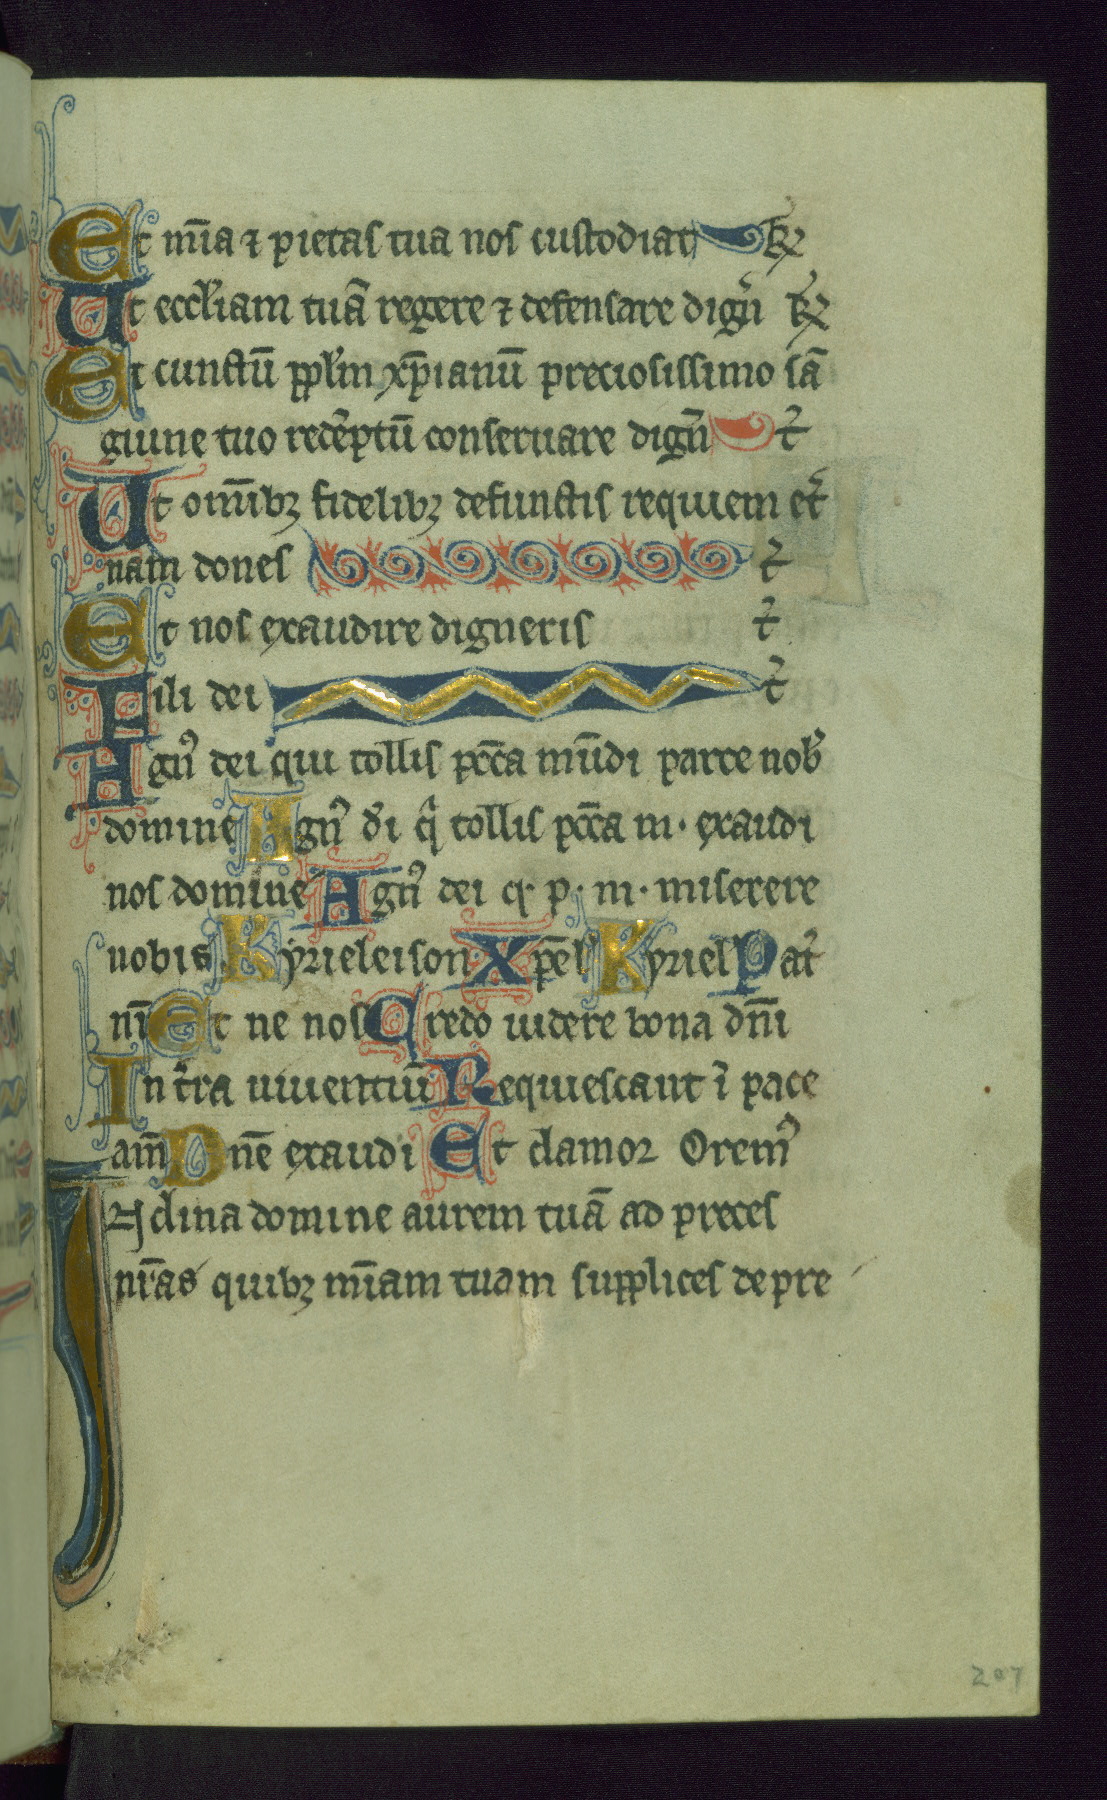 Et mīa ⁊ pietas tua nos custodiat
Ut eccl̄iam tuā regere ⁊ defensare digň
Et cunctū ppl̄m xp̄ianū preciosissimo sā
guine tuo redēptū conseruare digň t̄
Ut om̄ibꝫ fidelibꝫ defunctis requiem et̄
nam dones t̄
Et nos exaudire digneris t̄
Fili dei t̄
Agnꝰ dei qui tollis pccā mūdi parce nob̄
domine Agnꝰ dī q̄ tollis pccā m· exaudi
nos domine Agnꝰ dei q· p· m· miserere
nobis Kyrieleison· Xp̄el̄ Kyriel̄ Pat̄
nr̄ Et ne nos Credo uidere bona dn̄i
In tr̄ra uiuentiū Requiescant ī pace
am̄ Dn̄e exaudi Et clamor Oremꝰ
Inclina domine aurem tuā ad preces
nr̄as quibꝫ mīam tuam supplices depre
207